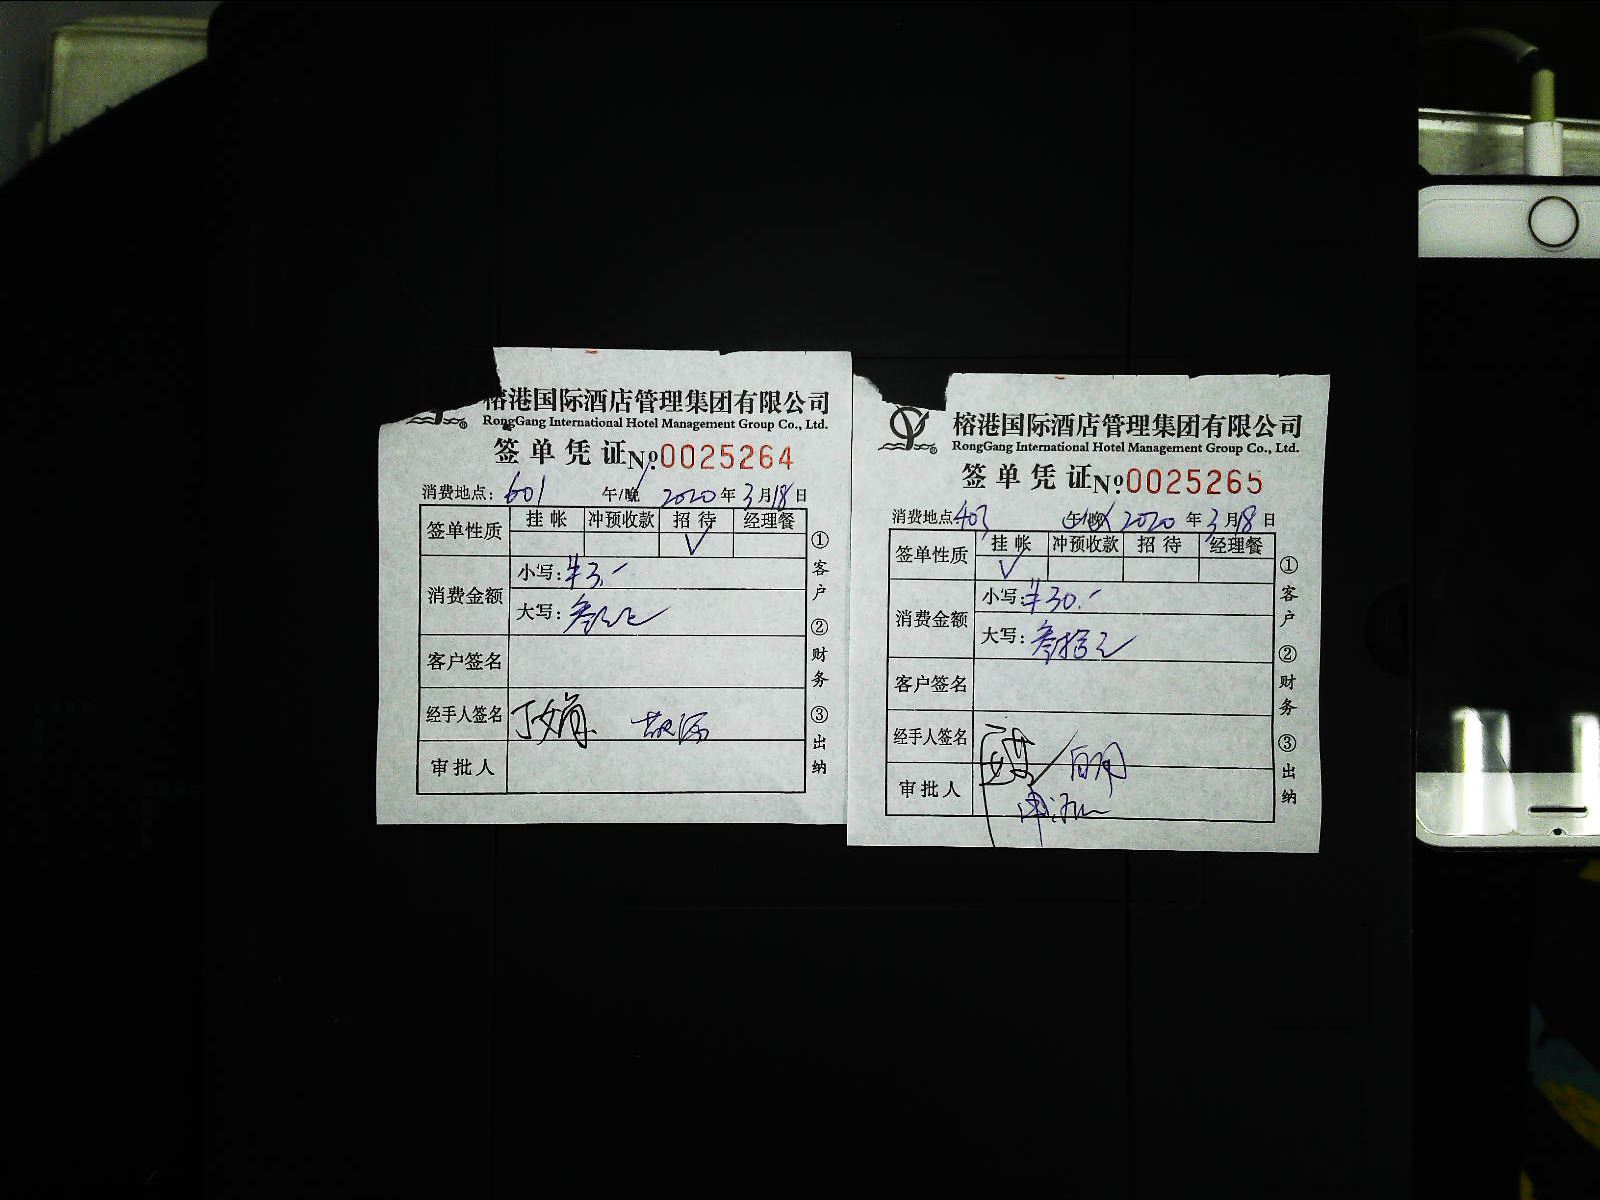 榕港国际酒店管理集团有限公司
RongGang International Hotel Management Group Co., Ltd.
签单凭证№0025264
消费地点：601 午/晚 2020年3月18日
签单性质 挂帐 冲预收款 招待 经理餐
√
消费金额
小写：¥3.-
大写：叁元正
客户签名
经手人签名 丁文娟
审批人
①客户 ②财务 ③出纳
榕港国际酒店管理集团有限公司
RongGang International Hotel Management Group Co., Ltd.
签单凭证№0025265
消费地点403 午/晚 2020年3月18日
签单性质 挂帐 冲预收款 招待 经理餐
√
消费金额
小写：¥30.-
大写：叁拾元
客户签名
经手人签名
审批人
①客户 ②财务 ③出纳